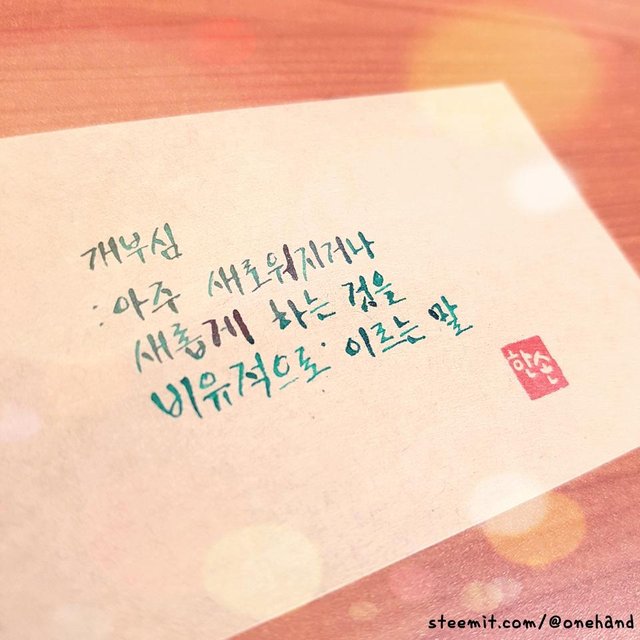 개부심
: 아주 새로워지거나
새롭게 하는 것을
비유적으로 이르는 말
한손
steemit.com/@onehand